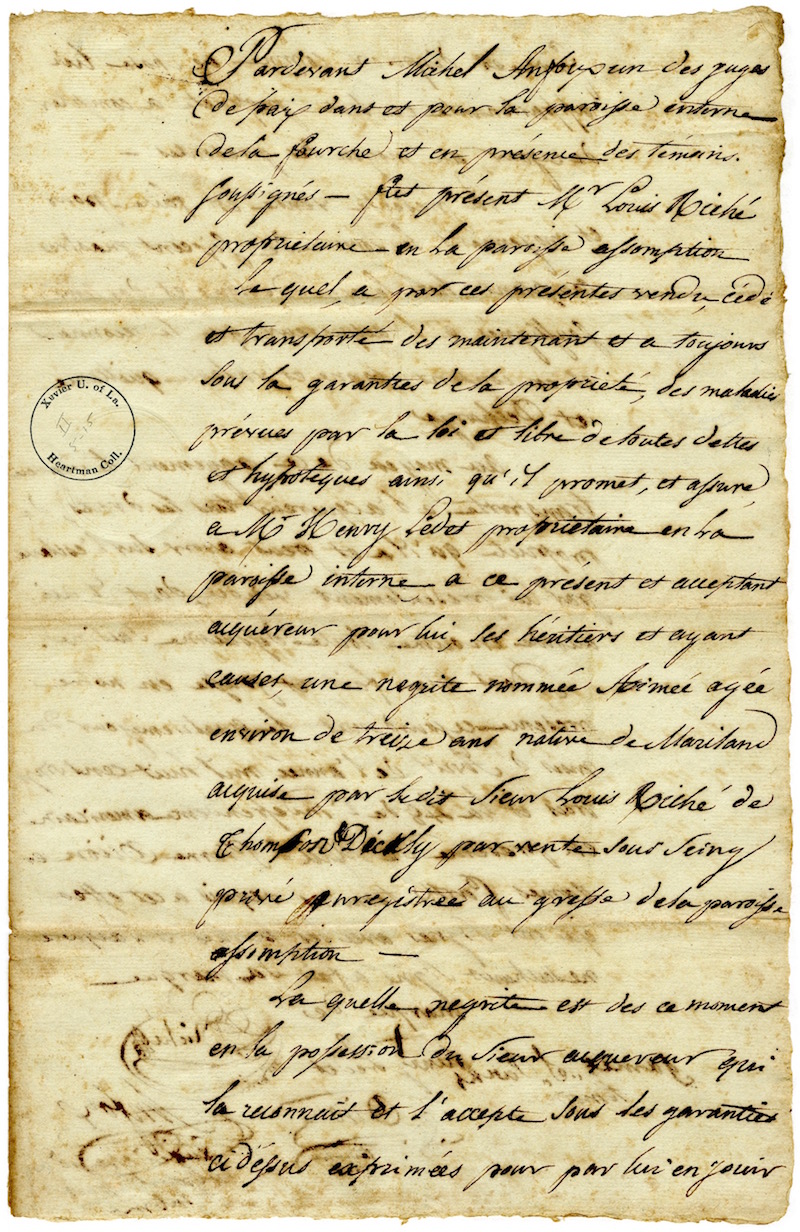 Pardevant Michel un des juges
de paix dans et pour la paroisse interne
de la fourche et en présence des témoins
soussignés — fut présent Mr Louis Riché
proprietaire en la paroisse assomption
le quel, a par ces présentes vendu, cédé
et transporté des maintenant et a toujours
sous la garanties de la propriété, des maladies
prévues par la loi et libre de toutes dettes
et hypoteques ainsi qu'il promet, et assure,
a Mr Henry Ledet proprietaire en la
paroisse interne a ce présent et acceptant
acquéreur pour lui, ses héritiers et ayant
causes, une negrite nommée Aimeé agée
environ de treize ans native de Mariland
acquise par le dit Sieur Louis Riché de
Thompson par vente sous Seing
privé enregistrée au greffe de la paroisse
assomption —
La quelle negrite est des ce moment
en la possession du Sieur acquereur qui
la reconnait et l'accepte sous les garanties
ci déssus exprimées pour par lui en jouir
Xavier U. of La.
II
5-15
Heartman Coll.